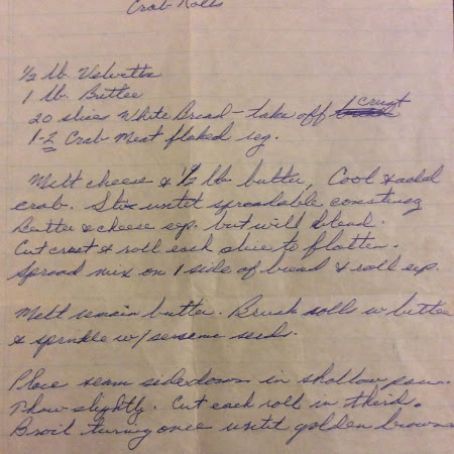 Crab Rolls
1/2 lb. Velveeta
1 lb. Butter
20 slices White Bread - take off crust
1-2 Crab Meat flaked reg.
Melt cheese & 1/2 lb. butter. Cool & add
crab. Stir until spreadable consistency
Butter & cheese sep. but will blend.
Cut crust & roll each slice to flatten.
Spread mix on 1 side of bread & roll up.
Melt remain butter. Brush rolls w butter
& sprinkle w/ sesame seeds.
Place seam side down in shallow pan.
Thaw slightly. Cut each roll in third.
Broil turning once until golden brown